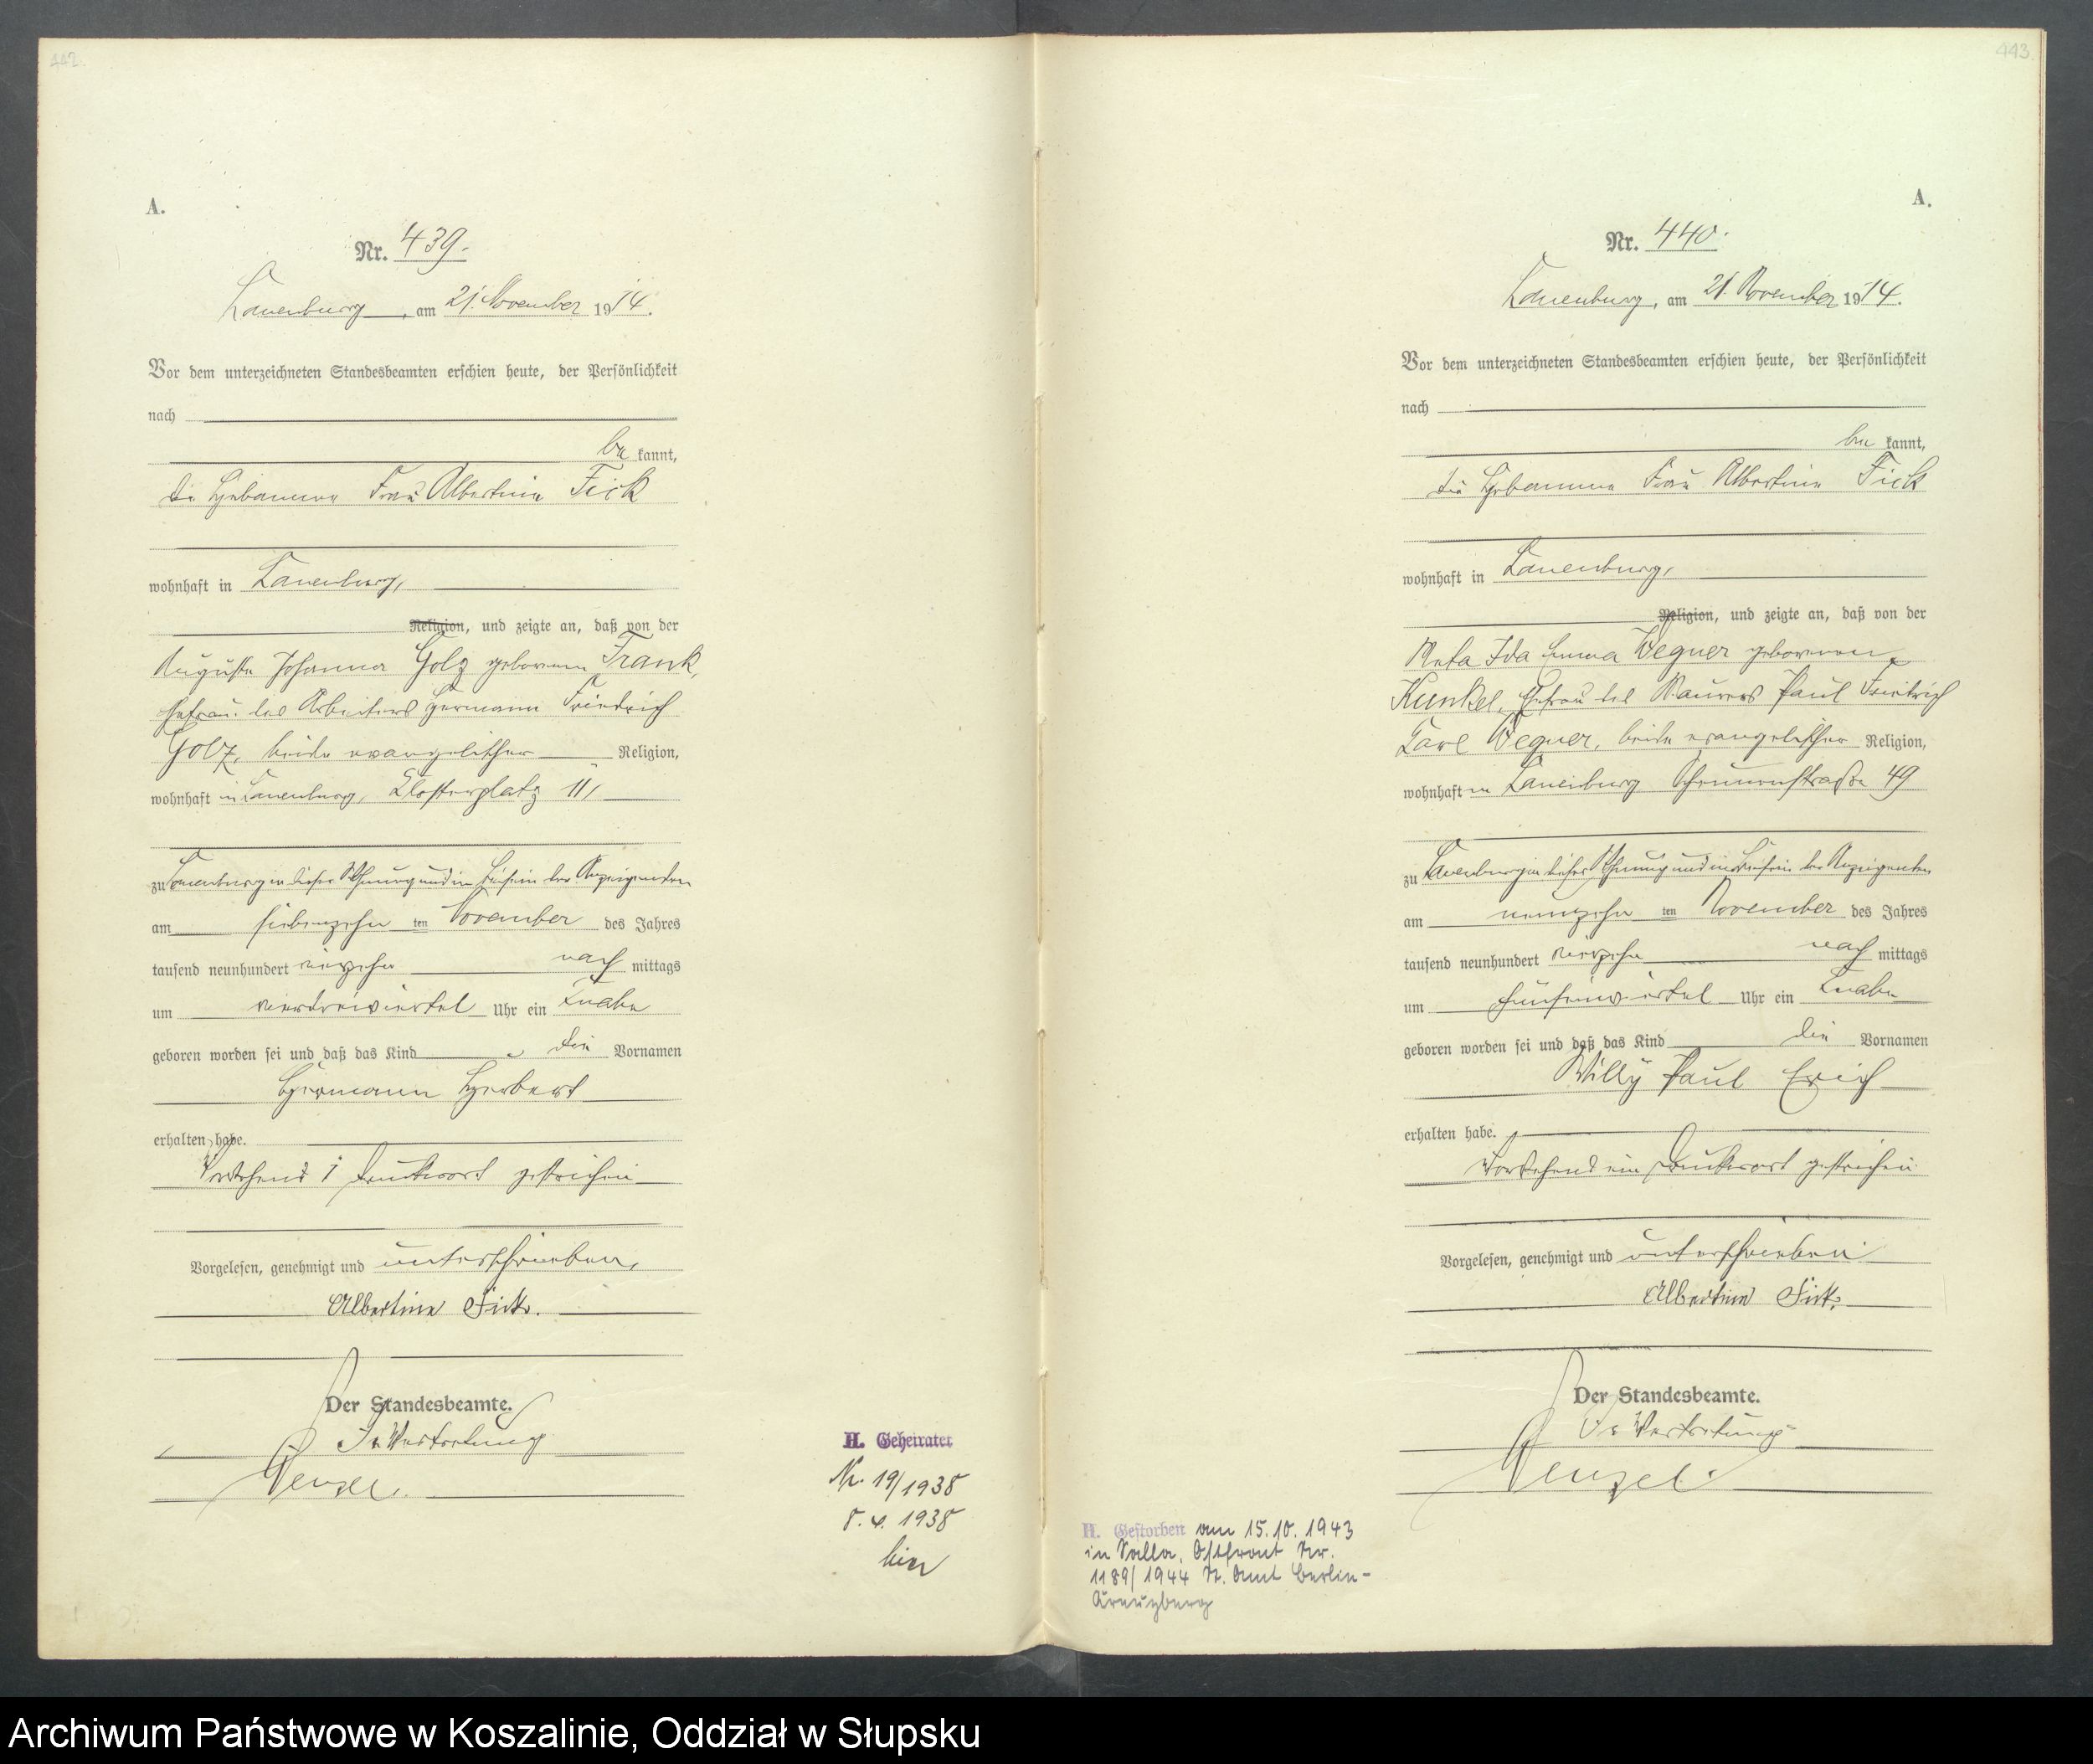 442.
A.
Nr. 439.
Lauenburg, am 21. November 1914.
Vor dem unterzeichneten Standesbeamten erschien heute, der Persönlichkeit
nach
be kannt,
die Hebamme Frau Albertine Fick
wohnhaft in Lauenburg,
Religion, und zeigte an, daß von der
Auguste Johanna Golz geborenen Frank,
Ehefrau des Arbeiters Hermann Friedrich
Golz, beide evangelischer Religion,
wohnhaft in Lauenburg, Klosterplatz 11,
zu Lauenburg in dieser Wohnung und im Beisein der Anzeigenden
am siebenzehn ten November des Jahres
tausend neunhundert vierzehn nach mittags
um vierdreiviertel Uhr ein Knabe
geboren worden sei und daß das Kind die Vornamen
Hermann Herbert
erhalten habe.
Vorstehend 1 Druckwort gestrichen
Vorgelesen, genehmigt und unterschrieben,
Albertine Fick.
Der Standesbeamte.
In Vertretung
Wenzel.
H. Geheiratet
Nr. 19/1938
8.4.1938
hier
443.
A.
Nr. 440.
Lauenburg, am 21. November 1914.
Vor dem unterzeichneten Standesbeamten erschien heute, der Persönlichkeit
nach
be kannt,
die Hebamme Frau Albertine Fick
wohnhaft in Lauenburg,
Religion, und zeigte an, daß von der
Meta Ida Emma Wegner geborenen
Kunkel, Ehefrau des Maurers Paul Friedrich
Karl Wegner, beide evangelischer Religion,
wohnhaft in Lauenburg Scheunenstraße 49
zu Lauenburg in dieser Wohnung und im Beisein der Anzeigenden
am neunzehn ten November des Jahres
tausend neunhundert vierzehn nach mittags
um fünfeinviertel Uhr ein Knabe
geboren worden sei und daß das Kind die Vornamen
Willy Paul Erich
erhalten habe.
Vorstehend ein Druckwort gestrichen
Vorgelesen, genehmigt und unterschrieben
Albertine Fick.
Der Standesbeamte.
In Vertretung
Wenzel.
H. Gestorben am 15.10.1943
in Salla, Ostfront Nr.
1189/1944 St. Amt Berlin-
Kreuzberg
Archiwum Państwowe w Koszalinie, Oddział w Słupsku